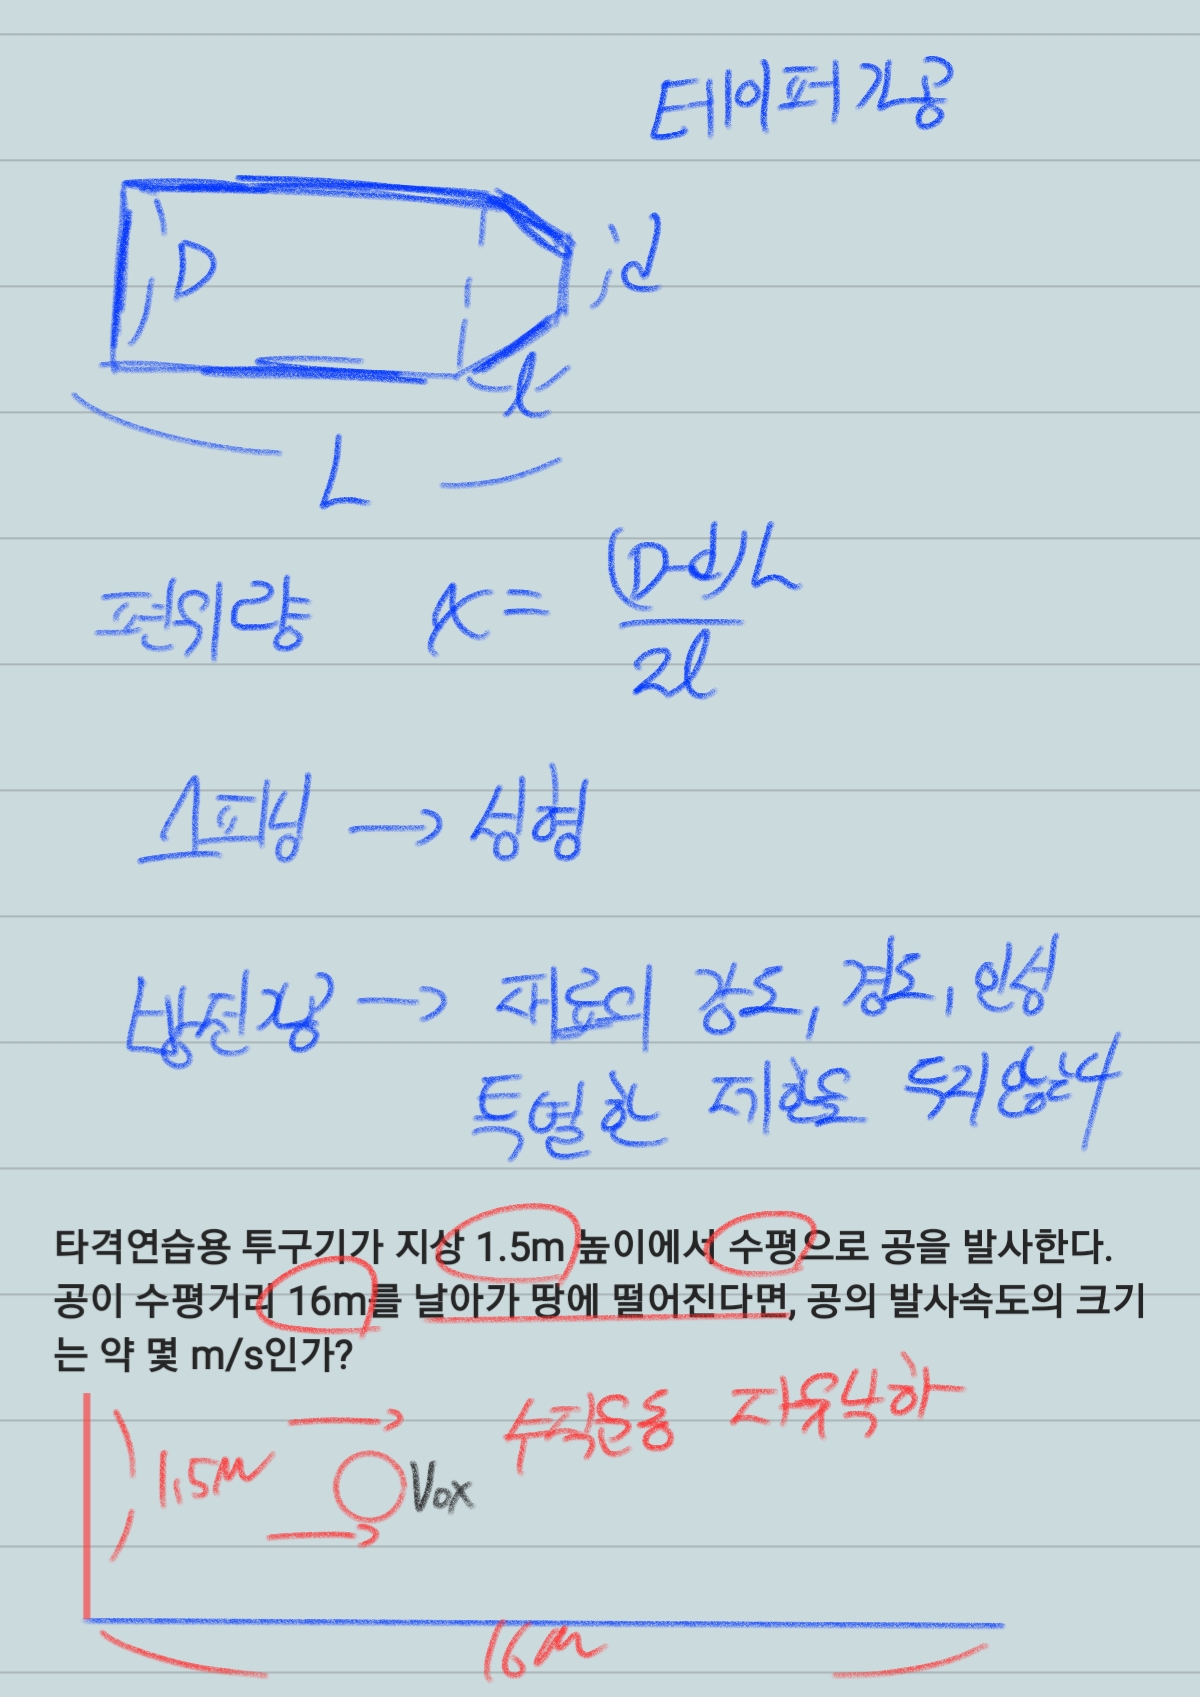 테이퍼가공
D
d
l
L
편위량 x = (D-d)L / 2l
스피닝 → 성형
방전가공 → 재료의 강도, 경도, 인성
특별한 제한을 두지않는다
타격연습용 투구기가 지상 1.5m 높이에서 수평으로 공을 발사한다.
공이 수평거리 16m를 날아가 땅에 떨어진다면, 공의 발사속도의 크기
는 약 몇 m/s인가?
수직운동 자유낙하
1.5m
Vox
16m